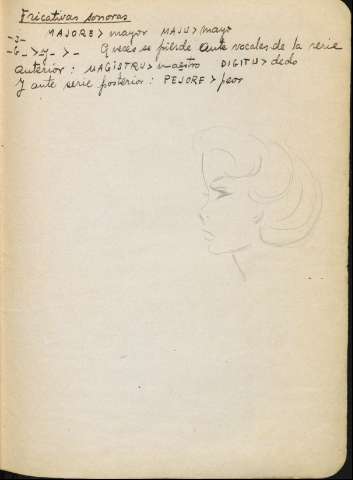 Fricativas sonoras
-J- MAJORE > mayor MAJU > mayo
-G- > y- > - A veces se pierde ante vocales de la serie
anterior: MAGISTRU > maestro DIGITU > dedo
Y ante serie posterior: PEJORE > peor